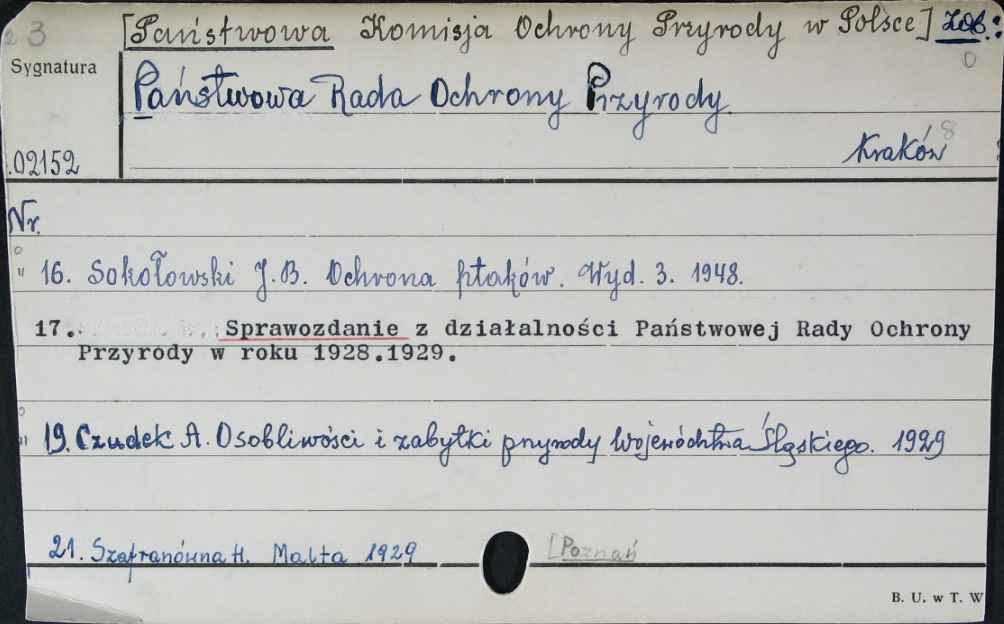 3 [Państwowa Komisja Ochrony Przyrody w Polsce] zob.:
Sygnatura
0
Państwowa Rada Ochrony Przyrody.
8
02152 Kraków
Nr.
16. Sokołowski J.B. Ochrona ptaków. Wyd. 3. 1948.
17. Sprawozdanie z działalności Państwowej Rady Ochrony
Przyrody w roku 1928.1929.
19. Czudek A. Osobliwości i zabytki przyrody Województwa Śląskiego. 1929
21. Szafranówna H. Malta 1929 [Poznań
B. U. w T. W